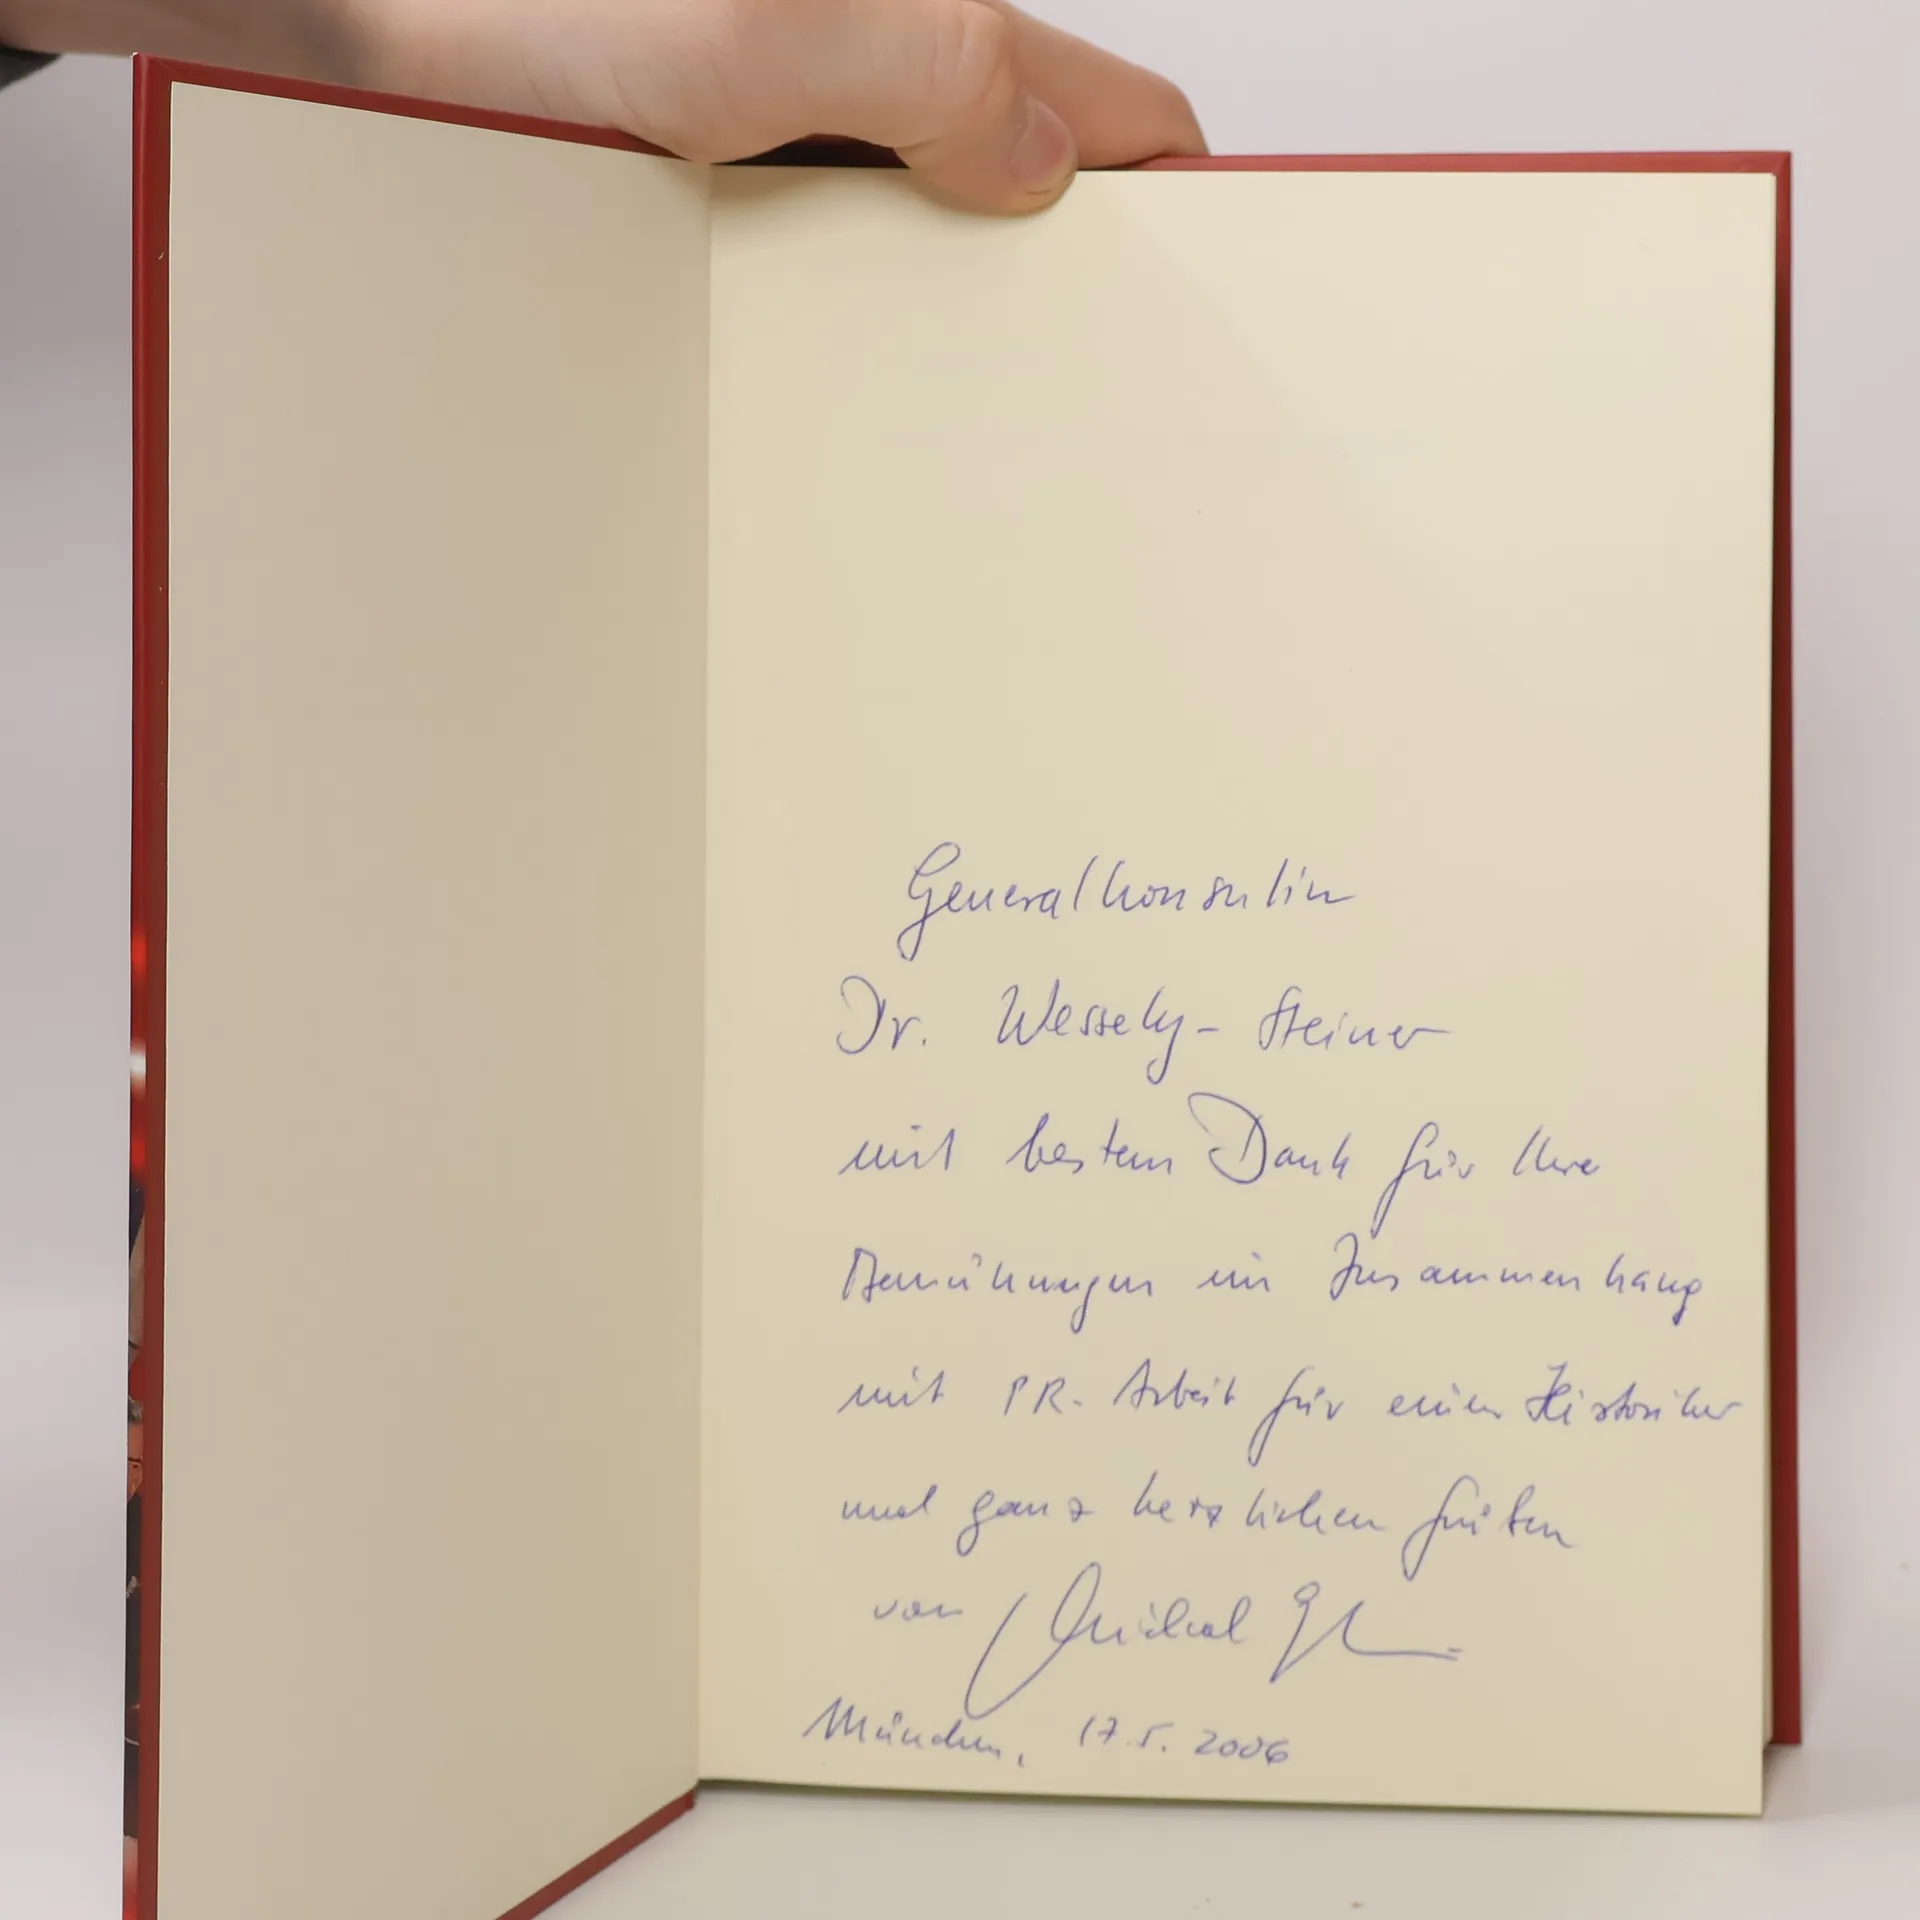 Generalkonsulin
Dr. Wessely-Steiner
mit bestem Dank für Ihre
Bemühungen im Zusammenhang
mit PR-Arbeit für einen Historiker
und ganz herzlichen Grüßen
von Michael
München, 17.5.2006